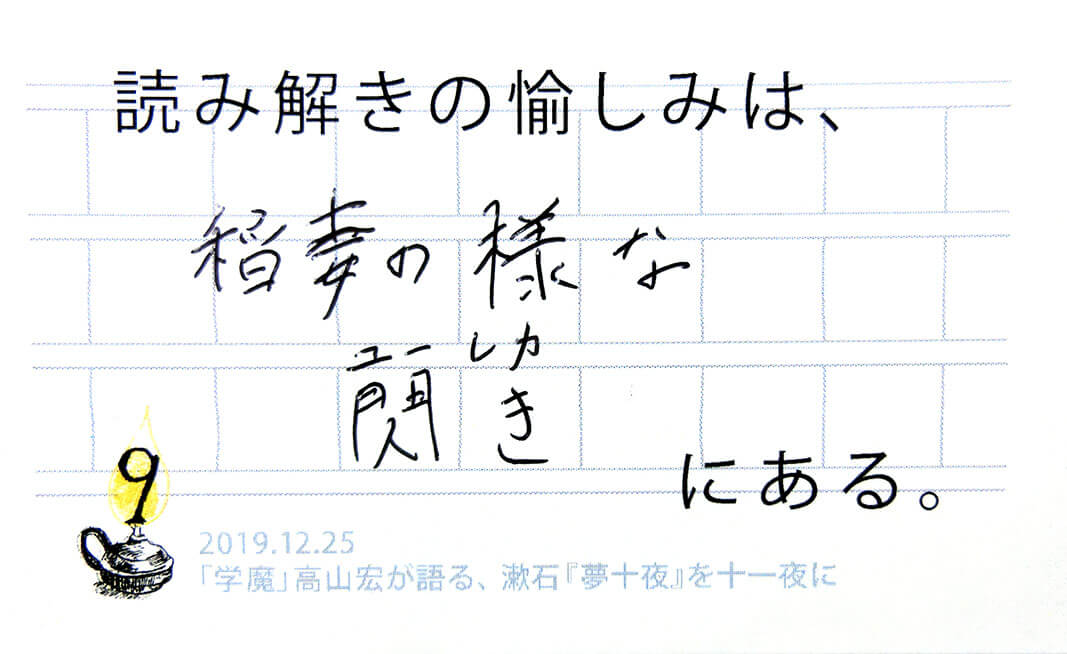 読み解きの愉しみは、
稲妻の様な
ユーレカ
閃き
にある。
9
2019.12.25
「学魔」高山宏が語る、漱石『夢十夜』を十一夜に